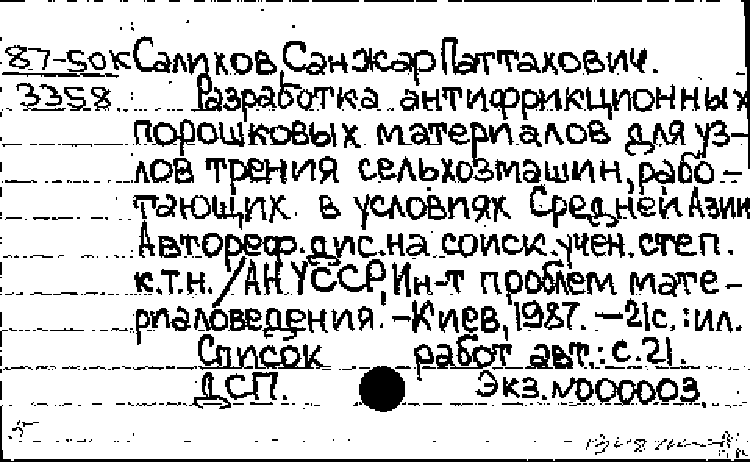 87-50к Салихов, Санжар Паттахович.
3358 Разработка антифрикционных
порошковых материалов для уз-
лов трения сельхозмашин, рабо-
тающих в условиях Средней Азии
Автореф. дис. на соиск. учен. степ.
к.т.н. / АН УССР, Ин-т проблем мате-
риаловедения. - Киев, 1987. - 21с.: ил.
Список работ авт.: с. 21.
ДСП. Экз. N000003.